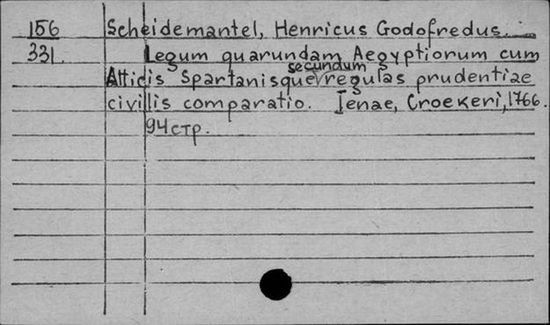 156 Scheidemantel, Henricus Godofredus.
331. Legum quarundam Aegyptiorum cum
secundum
Atticis Spartanisque regulas prudentiae
civilis comparatio. Ienae, Croekeri, 1766.
94 стр.